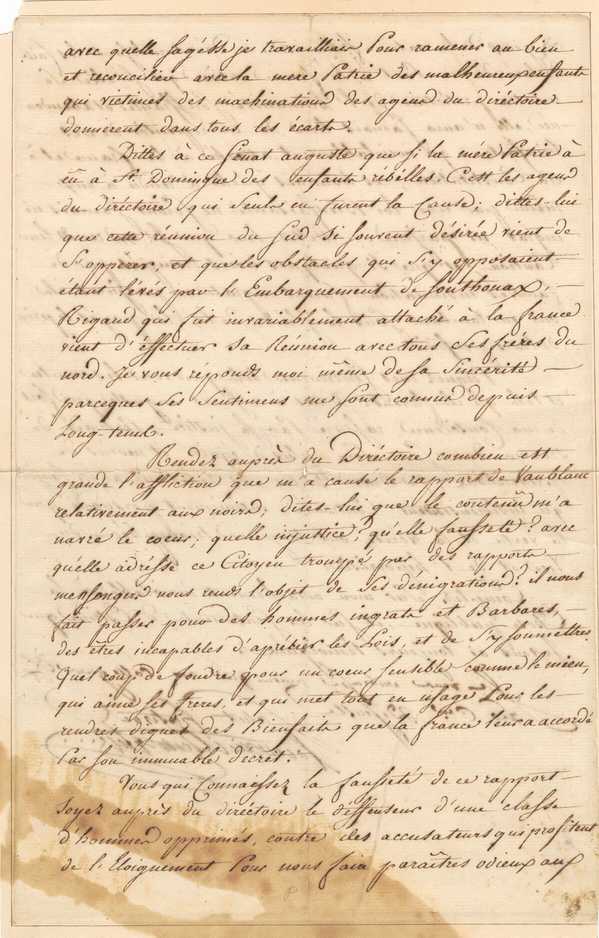 avec quelle sagésse je travaillais Pour ramener au bien
et reconcilier avec la mere Patrie des malheureux enfants
qui victimes des machinations des agens du diréctoire
donnerent dans tous les écarts.
Dittes à ce Sénat auguste que si la mére Patrie à
eû à St. Domingue des enfants rébelles. C'est les agens
du diréctoire qui Seuls en furent la Cause; dittes-lui
que cette réunion du Sud Si Souvent désirée vient de
S'oppérer, et que les obstacles qui S'y opposaient
étant lévés par l'Embarquement de Sonthonax,
Rigaud qui fut invariablement attaché à la france
vient d'éffectuer Sa Réunion avec tous Ses fréres du
nord. Je vous réponds moi même de Sa Sincérité
parceques Ses Sentimens me Sont connus depuis
Long-tems.
Rendez auprès du Diréctoire combien est
grande l'affliction que m'a causé le rapport de Vaublanc
relativement aux noirs; dites-lui que le contenû m'a
navré le coeur; quelle injustice, qu'elle fausseté? avec
qu'elle adrésse ce Citoyen trompé par des rapports
mensongers nous rends l'objet de Ses dénigrations? il nous
fait passer pour des hommes ingrats et Barbares,
des êtres incapables d'aprétier les Lois, et de S'y Soumêttres.
Quel coup de foudre pour un coeur Sensible comme le mien,
qui aime Ses freres, et qui met tout en usage Pour les
rendres dignes des Bienfaits que la france leur a accordé
Par Son immuable décrèt.
Vous qui Connaessez la fausseté de ce rapport
Soyez auprès du diréctoire le deffenseur d'une classe
d'hommes opprimés, contre des accusateurs qui profitent
de l'Eloignement Pour nous fair paraîtres odieux aux